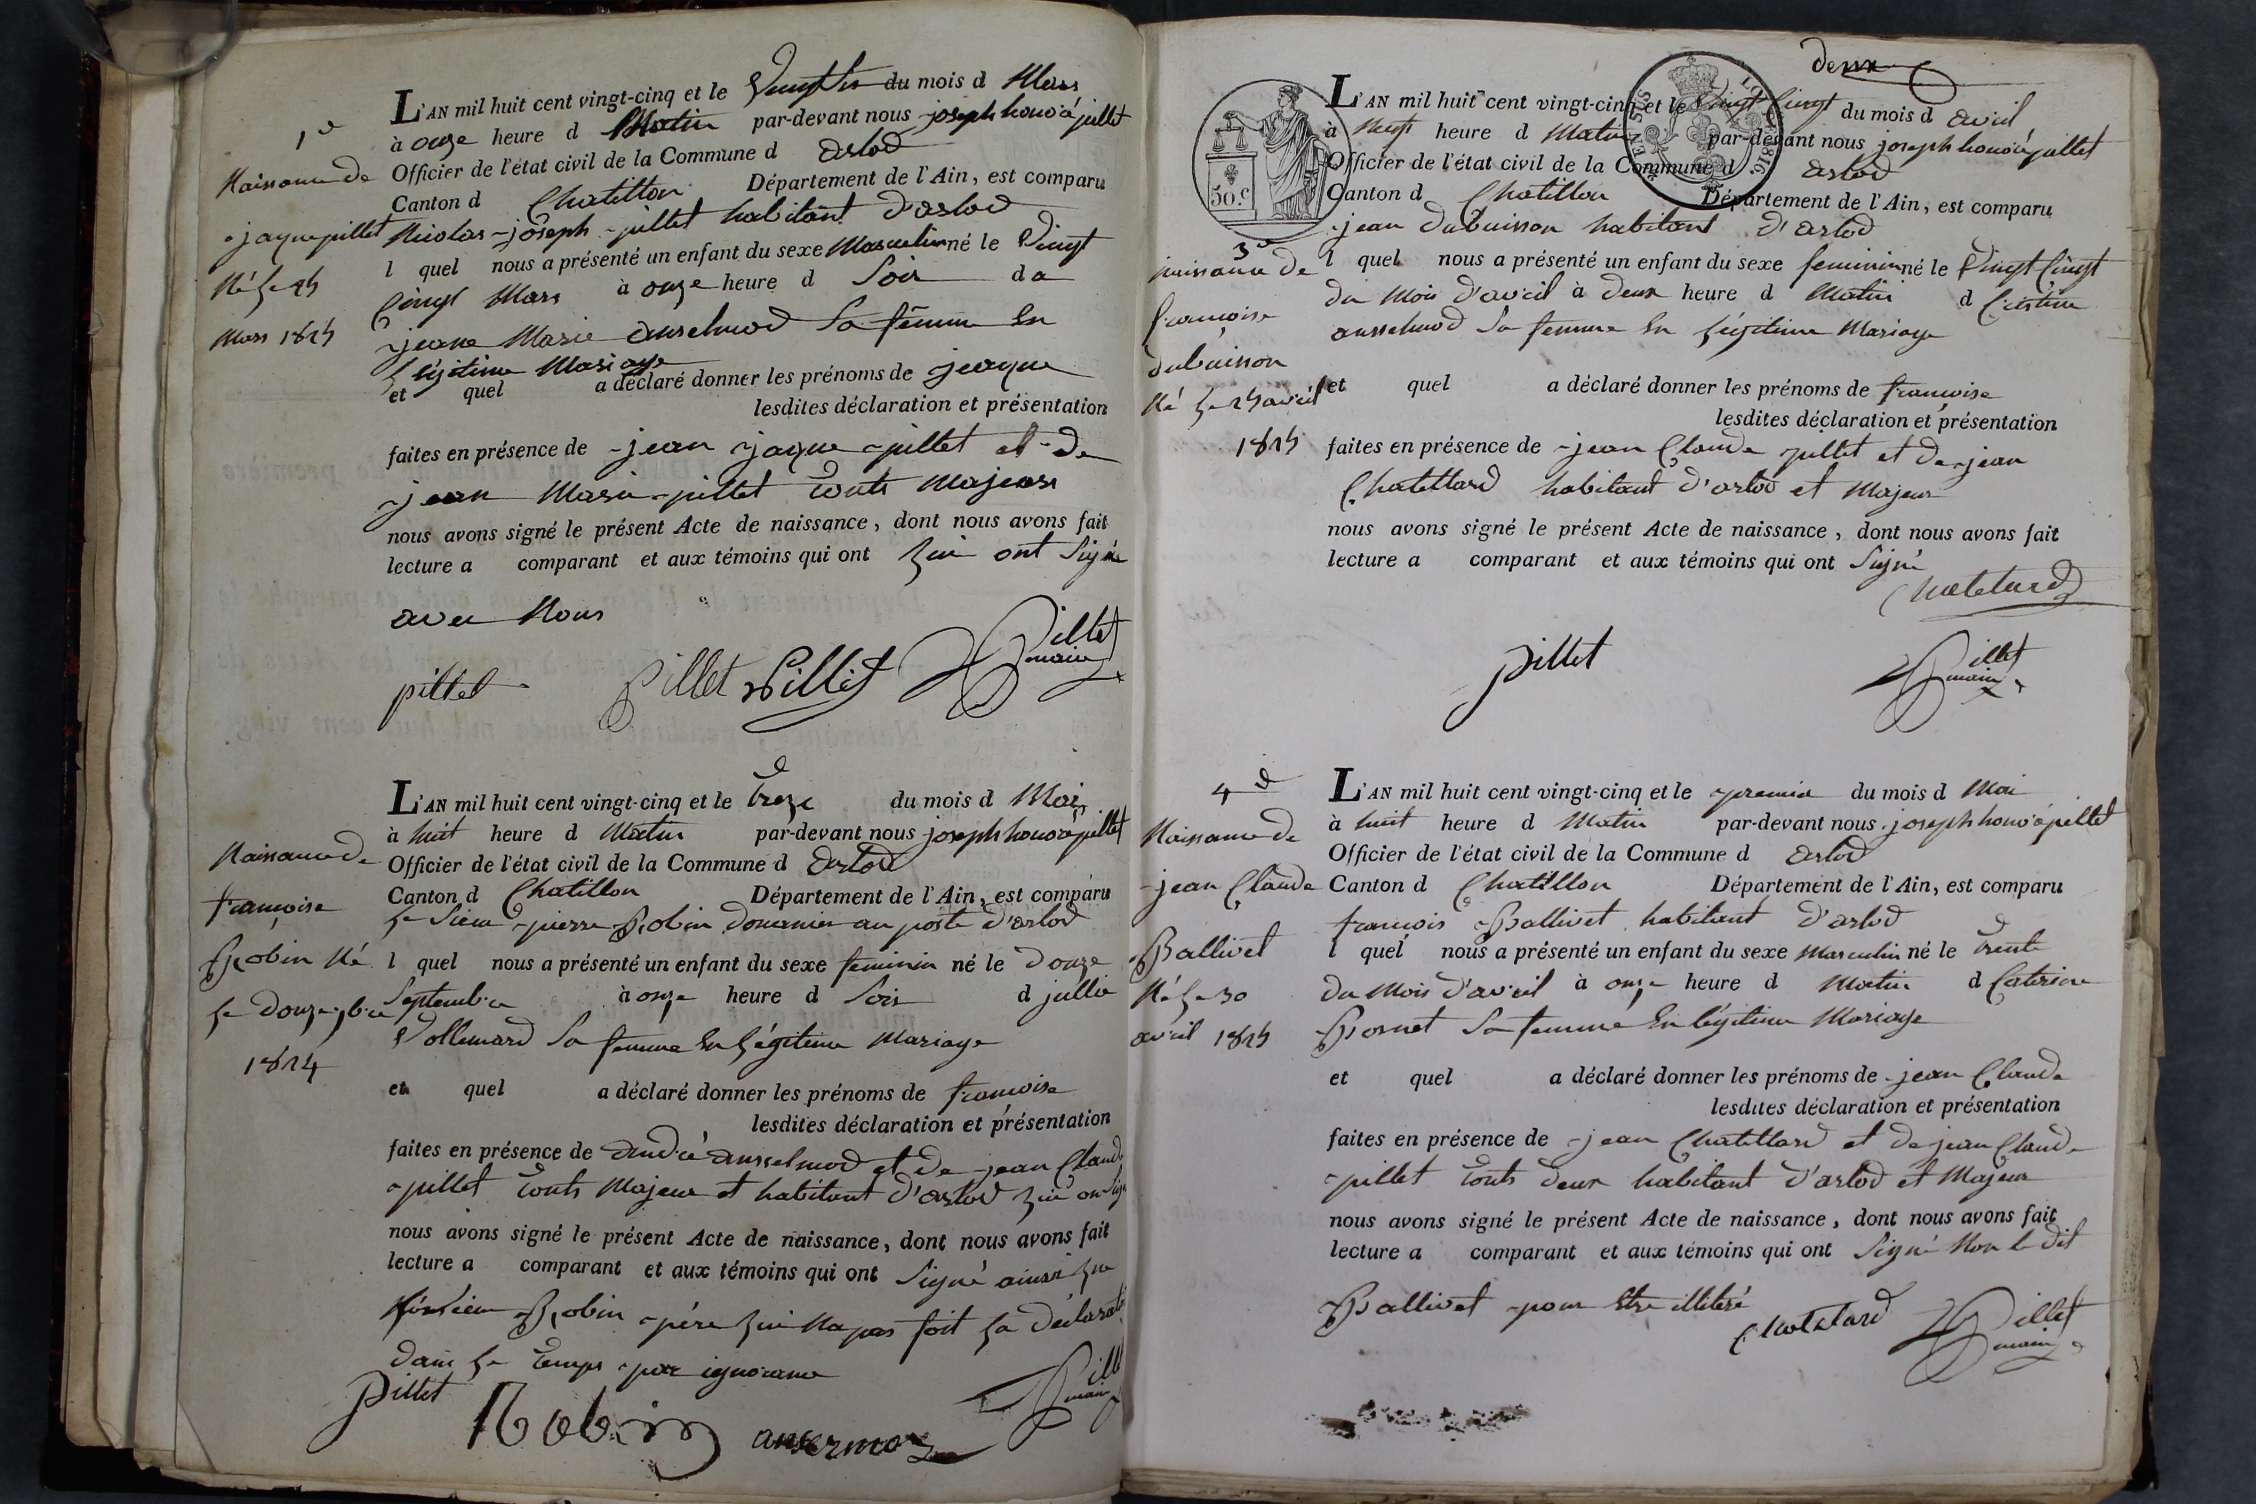 1e
Naissance de
jaque pillet
Né le 25
Mars 1825
L'AN mil huit cent vingt-cinq et le vingt six du mois d Mars
à onze heure d Matin par-devant nous joseph honoré pillet
Officier de l'état civil de la Commune d arlod
Canton d Chatillon Département de l'Ain, est comparu
Nicolas joseph pillet habitant d'arlod
l quel nous a présenté un enfant du sexe Masculin né le vingt
Cinq Mars à onze heure d Soir d a
jeane Marie anselmod Sa femme En
Légitime Mariage
et quel a déclaré donner les prénoms de jeaque
lesdites déclaration et présentation
faites en présence de jean jaque pillet et de
jean Marie pillet touts Majeurs
nous avons signé le présent Acte de naissance, dont nous avons fait
lecture a comparant et aux témoins qui ont qui ont Signé
avec Nous
pillet Pillet Pillet Pillet
maire
Naissance de
francoise
Robin Né
le douze 7bre
1824
L'AN mil huit cent vingt-cinq et le treze du mois d Mai
à huit heure d Matin par-devant nous joseph honoré pillet
Officier de l'état civil de la Commune d arlod
Canton d Chatillon Département de l'Ain, est comparu
le Sieur pierre Robin Douanier au poste d'arlod
l quel nous a présenté un enfant du sexe feminin né le douze
Septembre à onze heure d Soir d jullie
Vollemard Sa femme En Légitime Mariage
et quel a déclaré donner les prénoms de francoise
lesdites déclaration et présentation
faites en présence de andré ansselmod et de jean Claude
pillet touts Majeur et habitant d'arlod qui on Sign
nous avons signé le présent Acte de naissance, dont nous avons fait
lecture a comparant et aux témoins qui ont Signé ainsi que
Robin père qui Na pas fait La déclaration
dans le temps par ignorance
Pillet Robin ansermoz Pillet
maire
deux
50.c
3e
naissance de
francoise
dubuisson
Né Le 25 avril
1825
L'AN mil huit cent vingt-cinq et le vingt Cinq du mois d avril
à Neuf heure d Matin par-devant nous joseph honoré pillet
Officier de l'état civil de la Commune d arlod
Canton d Chatillon Département de l'Ain, est comparu
jean dubuisson habitant d'arlod
l quel nous a présenté un enfant du sexe feminin né le vingt Cinq
du Mois d'avril à deux heure d Matin d Cristine
ansselmod Sa femme En Légitime Mariage
et quel a déclaré donner les prénoms de francoise
lesdites déclaration et présentation
faites en présence de jean Claude pillet et de jean
Chatellard habitant d'arlod et Majeur
nous avons signé le présent Acte de naissance, dont nous avons fait
lecture a comparant et aux témoins qui ont Signé
Chatelard
pillet Pillet
maire
4e
Naissance de
jean Claude
Ballivet
Né Le 30
avril 1825
L'AN mil huit cent vingt-cinq et le premier du mois d Mai
à huit heure d Matin par-devant nous joseph honoré pillet
Officier de l'état civil de la Commune d arlod
Canton d Chatillon Département de l'Ain, est comparu
francois Ballivet habitant d'arlod
l quel nous a présenté un enfant du sexe Masculin né le trente
du Mois d'avril à onze heure d Matin d Caterine
Bornet Sa femme En légitime Mariage
et quel a déclaré donner les prénoms de jean Claude
lesdites déclaration et présentation
faites en présence de jean Chatellard et de jean Claude
pillet touts deux habitant d'arlod et Majeur
nous avons signé le présent Acte de naissance, dont nous avons fait
lecture a comparant et aux témoins qui ont Signé Non le dit
Ballivet pour Etre illitéré
Chatelard Pillet
maire